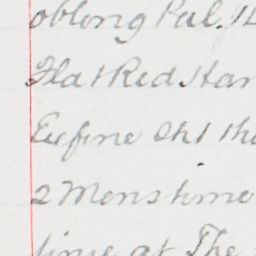 oblong Pul.
Flat Red Han
Exfine Sht the
2 Mens time
time at The